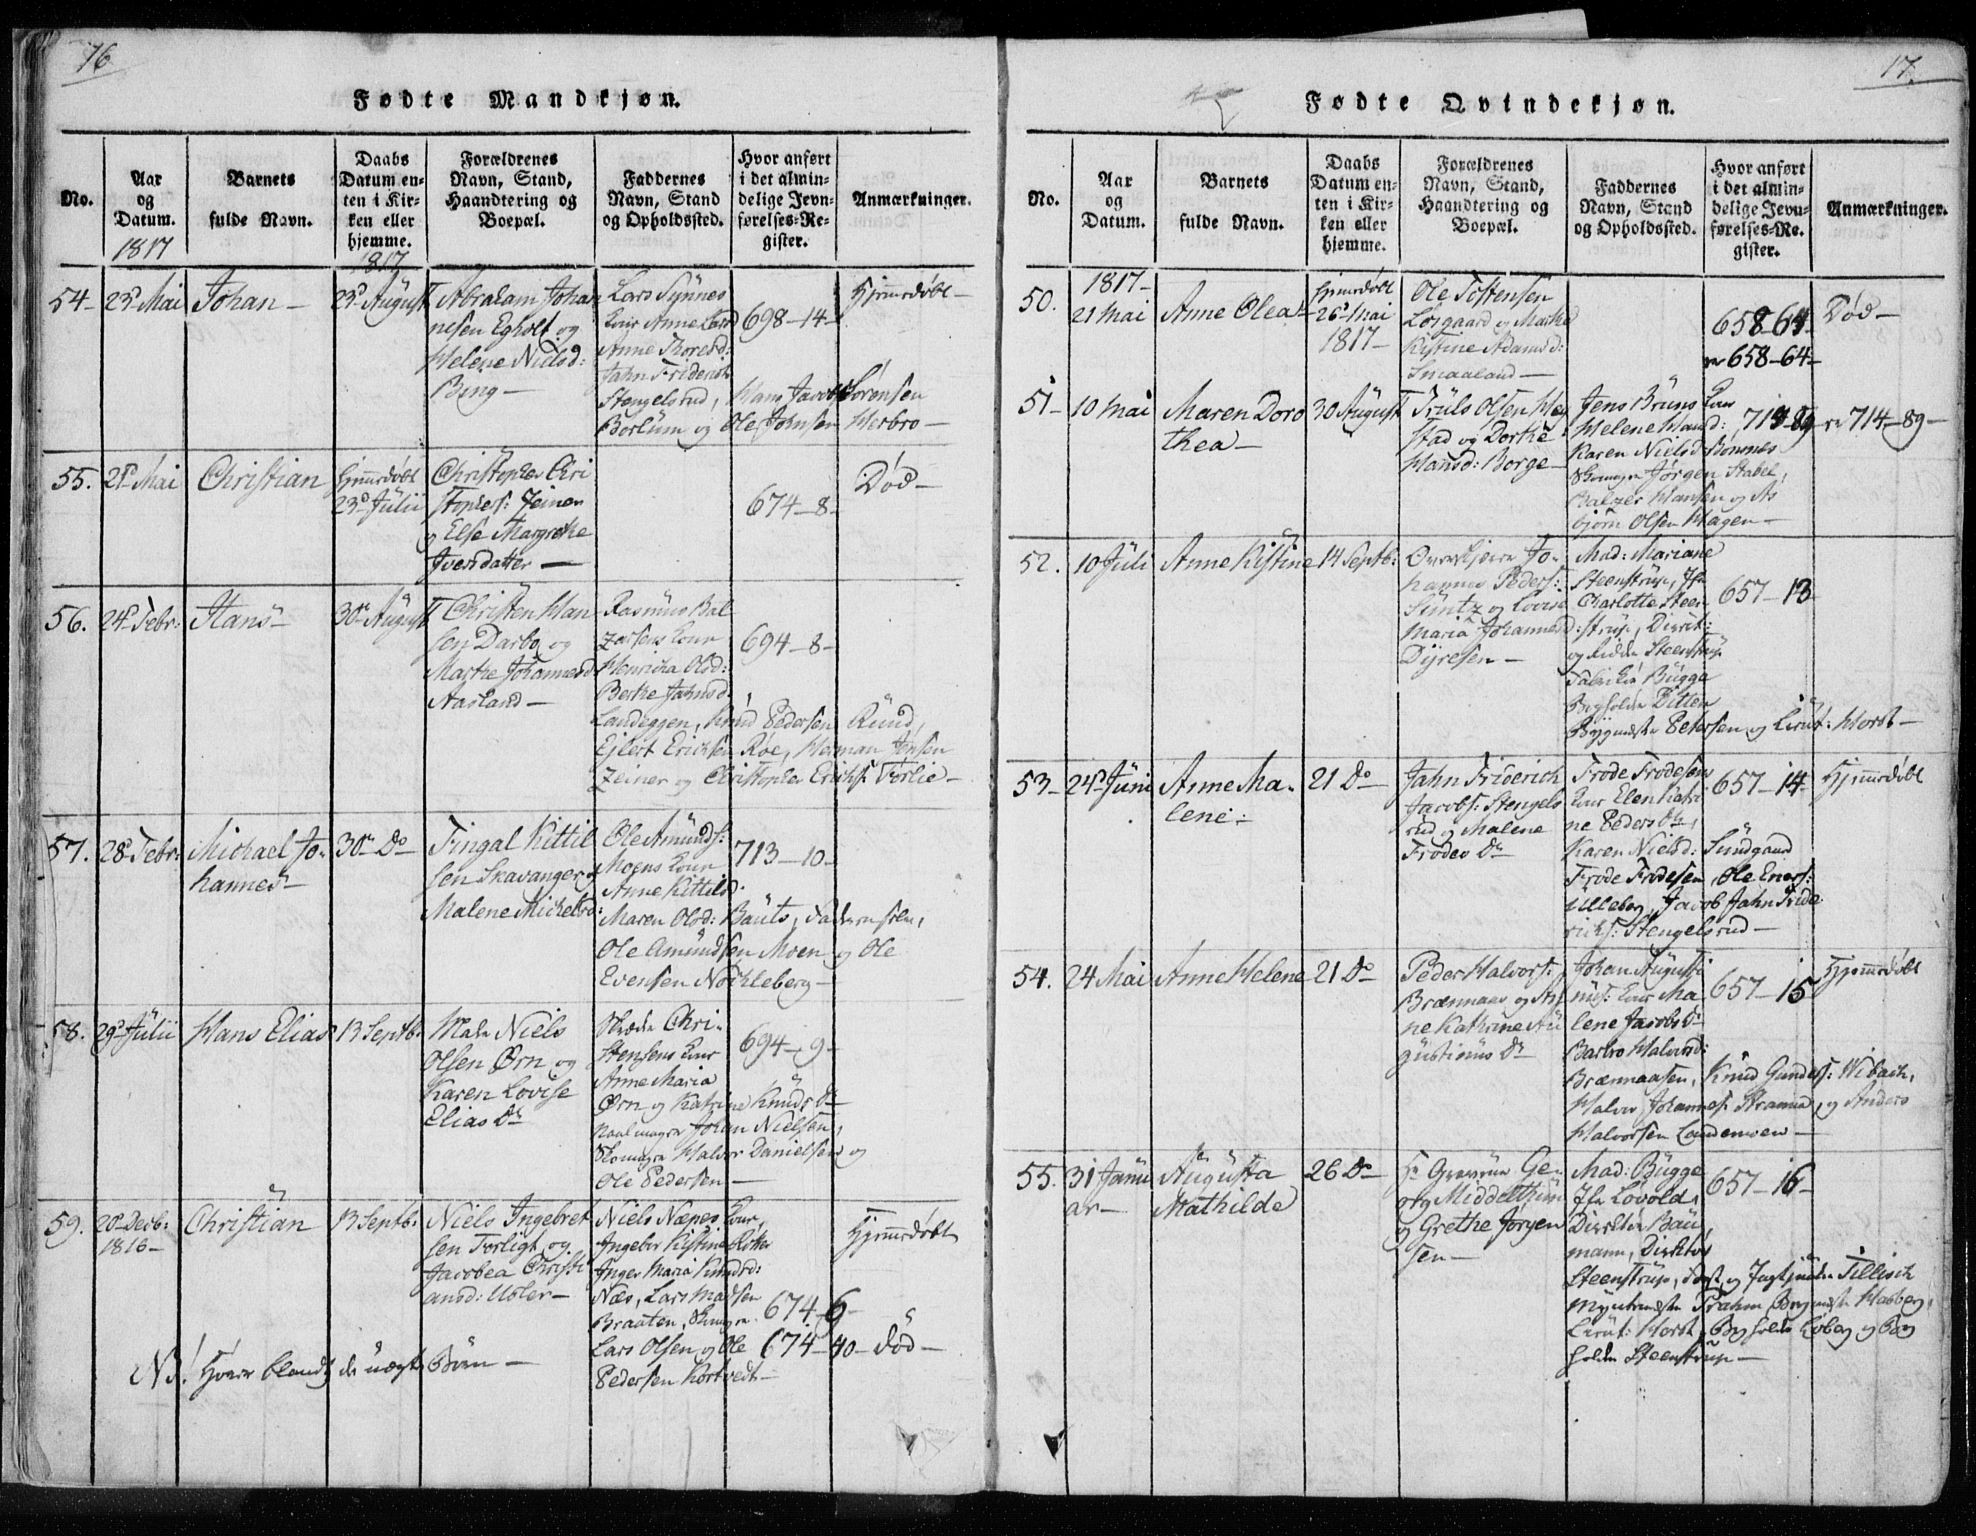 16
Fødte Mandkjøn.
No.
Aar
og
Datum.
1817
Barnets
fulde Navn.
Daabs
Datum en-
ten i Kir-
ken eller
hjemme.
1817
Forældrenes
Navn, Stand,
Haandtering og
Boepæl.
Faddernes
Navn, Stand
og Opholdssted.
Hvor anført
i det almin-
delige Jevn-
førelses-Re-
gister.
Anmærkninger.
54-
23de Mai
Johan-
23de August
Abraham Johan
nesen Egholt og
Helene Nielsd:
Bing-
Lars Synnes
Kone Anne Larsd
Anne Thoresd:
Jahn Friderich
Stengelsrud, Hans Jacob Sørensen
Borlum og Ole Johnsen Herbro-
698-14-
Hjemmedøbt-
55.
21de Mai
Christian
Hjemmedøbt
23de Julii
Christopher Chri
stophers: Zeiner
og Else Margrethe
Iversdatter-
674-8-
Død-
56.
24de Febr:
Hans-
30te August
Christen Han
sen Darbo og
Marthe Johannesd
Aasland-
Rasmus Bal
zersens Kone
Henricha Olsd:
Berthe Jahnsd.
Landeggen, Knud Pedersen Rund,
Ejlert Erichsen Røe, Herman Jensen
Zeiner og Christopher Erichs: Torlie-
694-8-
57.
28de Febr:
Michael Jo-
hannes-
30te Do
Tingal Kittil
sen Skavanger og
Malene Michelsd:
Ole Amunds:
Moens Kone
Anne Kittilsd.
Maren Olsd: Bauts, Faderen selv,
Ole Amundsen Moen og Ole
Evensen Nøchleberg-
713-10-
58.
29de Julii
Hans Elias
13 Septb:
Niels
Olsen Ørn og
Karen Lovise
Elias Dr
Chri-
stensens Kone
Anne Maria
Ørn og Katrine Knuds Dr
Johan Nielsen,
Skomager Halvor Danielsen og
Ole Pedersen-
694-9-
59.
20de Decb:
1816-
Christian
13 Septb:
Niels Ingebret
sen Torligt og
Jacobea Christi
ansd: Usler-
Niels Næpes Kone,
Ingebor Kistine
Inger Maria Knudsd:
Næs, Lars Madsen
Braaten,
Lars Olsen og Ole
Pedersen Kortvedt-
674-6-
674-40- død-
Hjemmedøbt
NB! Hører blandt de uægte Børn-
17.
Fødte Qvindekjøn.
No.
Aar
og
Datum.
Barnets
fulde Navn.
Daabs
Datum en-
ten i Kir-
ken eller
hjemme.
Forældrenes
Navn, Stand,
Haandtering og
Boepæl.
Faddernes
Navn, Stand
og Opholdssted.
Hvor anført
i det almin-
delige Jevn-
førelses-Re-
gister.
Anmærkninger.
50.
1817-
21 Mai
Anne Olea-
Hjemmedøbt
26de Mai
1817-
Ole Tostensen
Losgaard og Marthe
Kistine Adamsd:
Smaaland-
658-64-
658-64-
Død-
51-
10 Mai
Maren Doro
thea-
30 August
Truls Olsen Hey
stad og Dorthe
Hansd: Borge-
Jens Bruns Kone
Helene Hansd:
Karen Nielsd Bommes
Skomager Jørgen Stabel,
Balzer Hansen og As
bjørn Olsen Hagen-
714-89-
52.
10 Juli
Anne Kistine
14 Septb:
Jo-
hannes Peders:
Suntz og Lovise
Maria Johannesd:
Dyresen-
Mad: Mariane
Steenstrup, Jfr
Charlotte Steen-
strup, Direct:
og Ridder Steenstrup
Bugge
Ditten
Petersen og Lieut: Horst-
657-13-
53-
24de Juni
Anne Ma-
lene:
21 Do
Jahn Friderich
Jacobs: Stengels
rud og Malene
Frodes Dr
Frode Frodesens
Kone Elen Katri
ne Peders Dr,
Karen Nielsd: Sundgaard
Frode Frodesen, Ole Eners:
Ulleberg, Jacob Jahn Fride
richs: Stengelsrud-
657-14-
Hjemmedøbt
54.
24 Mai
Anne Helene
21 Do
Peder Halvors:
Brænnaas og An
ne Kathrine Au
gustinus Dr
Johan Augusti
nus: Kone Ma
lene Jacobs Dr
Barbro Halvorsd:
Brænnaasen, Knud Gunders: Wibach,
Halvor Johannes: Stramna, og Anders
Halvorsen Londemoen-
657-15
Hjemmedøbt
55.
31 Janu
ar-
Augusta
Mathilde
26 Do
Hr Graveur Ge-
org Middelthun
og Grethe Jørgen
sen-
Mad: Bugge
Jfr Løvold,
Direktør Bau
mann, Direktør
Steenstrup, Tillisch
Myntmester Prahm
Lieut: Horst,
Steenstrup-
657-16-